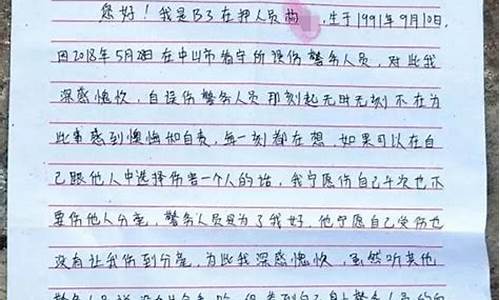 您好！我是B3在押人员尚 ，生于1991年9月10日.
因2018年5月2日在中山市看守所误伤警务人员，对此我
深感愧疚，自误伤警务人员那刻起无时无刻不在为
此事感到懊悔如自责，每一刻都在想，如果可以在自
己跟他人中选择伤害一个人的话，我宁愿伤自己千次也不
要伤他人分毫，警务人员是为了我好，他宁愿自己受伤也
没有让我伤到分毫，为此我深感愧疚，虽然听其他
警务人员说没有什么事 但 看到自己 警务人员的